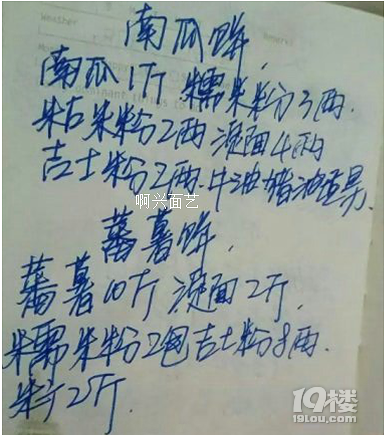 南瓜
南瓜1斤 糯米粉3两.
粘米粉2两 澄面4两
吉士粉2两.牛油猪油适量.
啊兴面艺
蕃薯
蕃薯10斤 澄面2斤.
糯米粉2包吉士粉8两.
2斤.
19楼
19lou.com